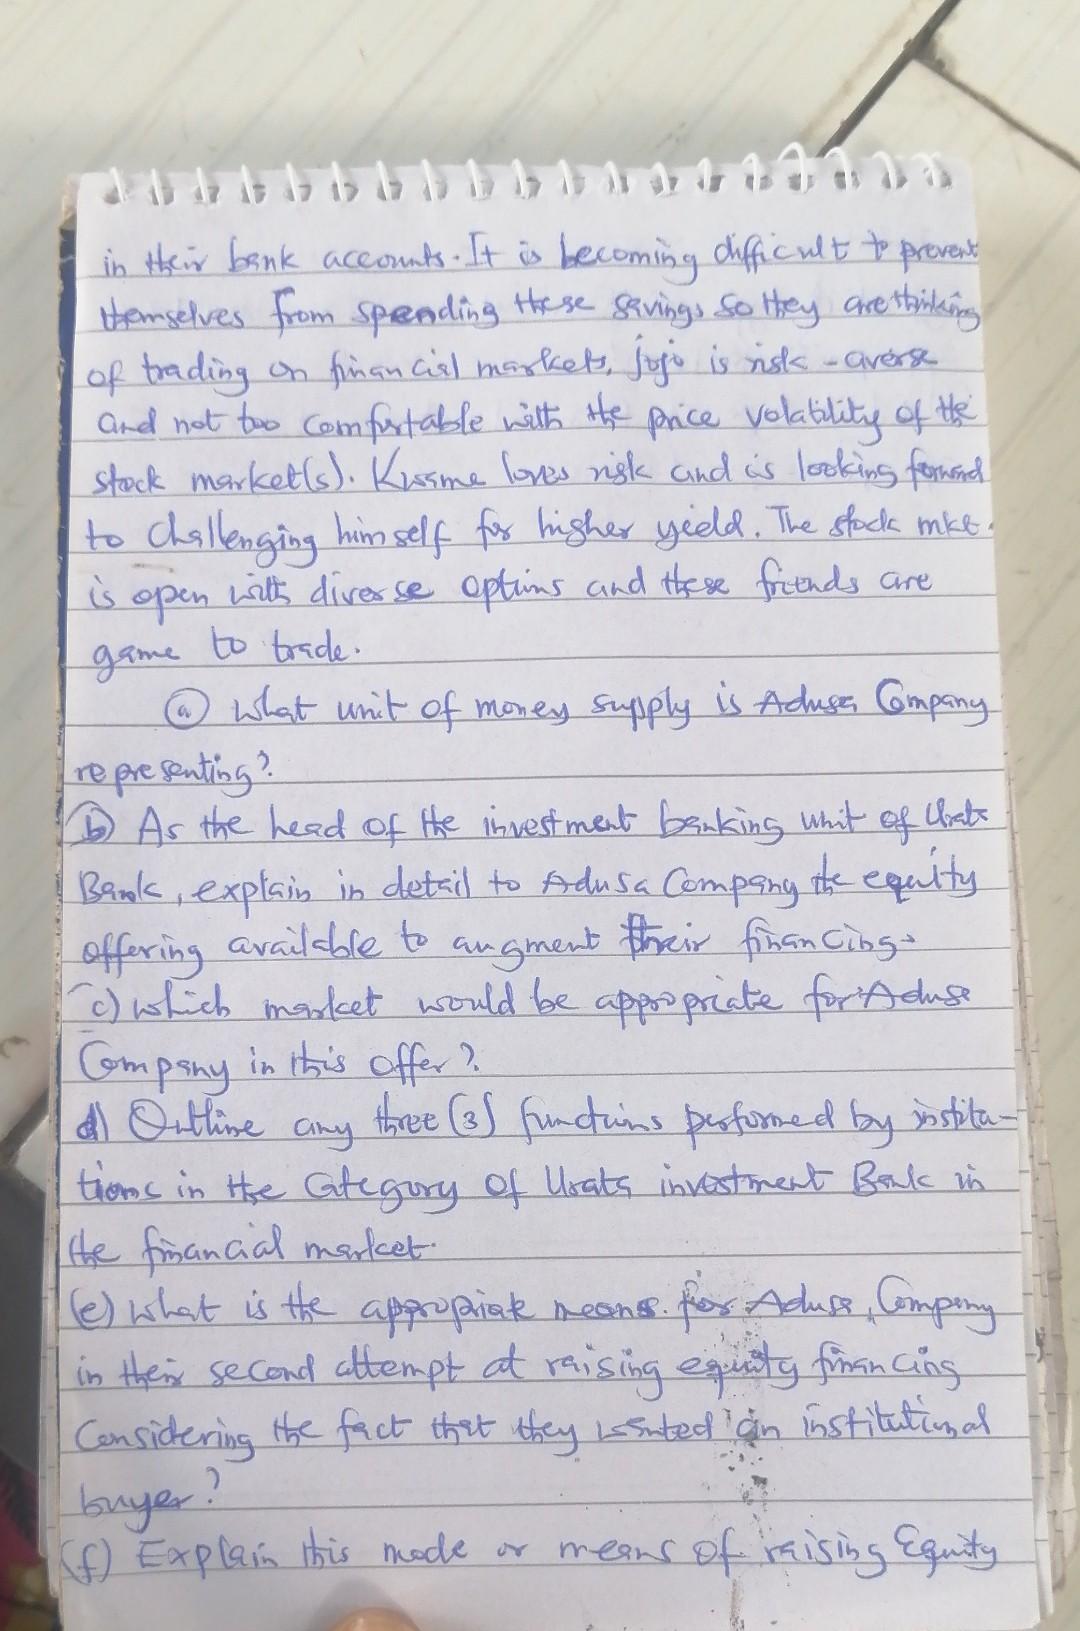 in their bank accounts. It is becoming difficult to prevent
themselves from spending these savings so they are thinking
of trading on financial markets, jojo is risk-averse
and not too comfortable with the price volatility of the
stock market(s). Kwame loves risk and is looking forward
to challenging himself for higher yield. The stock mkt.
is open with diverse options and these friends are
game to trade.
(a) What unit of money supply is Adusa Company
representing?
(b) As the head of the investment banking unit of Urats
Bank, explain in detail to Adusa Company the equity
offering available to augment their financing.
c) which market would be appropriate for Adusa
Company in this offer?
d) Outline any three (3) functions performed by institu-
tions in the Category of Urats investment Bank in
the financial market.
(e) What is the appropriate means for Adusa Company
in their second attempt at raising equity financing
Considering the fact that they wanted an institutional
buyer?
(f) Explain this mode or means of raising Equity